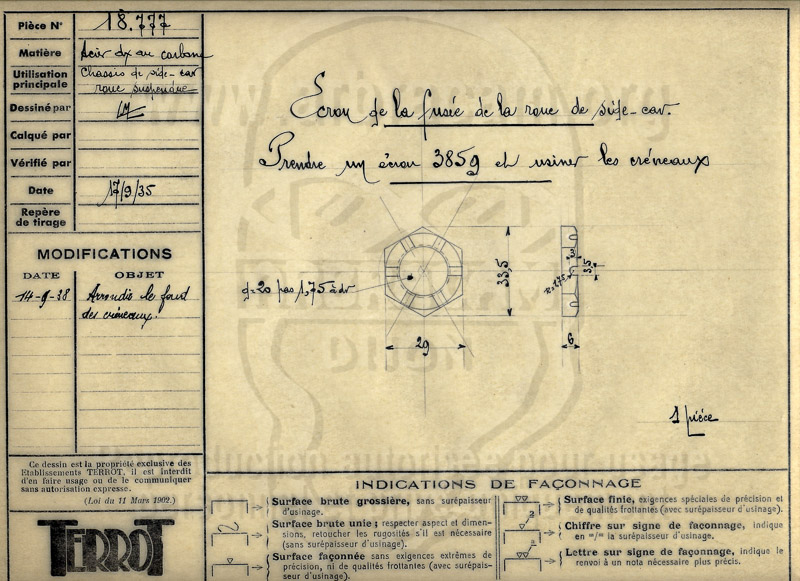 Pièce N° 18.777
Matière Acier dx au carbone
Utilisation principale Chassis de side-car
roue suspendue
Dessiné par
Calqué par
Vérifié par
Date 17/9/35
Repère de tirage
MODIFICATIONS
DATE OBJET
14-9-38 Arrondis le fond
des créneaux.
Ce dessin est la propriété exclusive des
Etablissements TERROT, il est interdit
d'en faire usage ou de le communiquer
sans autorisation expresse.
(Loi du 11 Mars 1902.)
TERROT
Ecrou de la fusée de la roue de side-car.
Prendre un écrou 3859 et usiner les créneaux
d=20 pas 1,75 à dr
33,5
29
3
3,5
R=1,75
6
1 pièce
INDICATIONS DE FAÇONNAGE
Surface brute grossière, sans surépaisseur
d'usinage.
Surface brute unie; respecter aspect et dimen-
sions, retoucher les rugosités s'il est nécessaire
(sans surépaisseur d'usinage).
Surface façonnée sans exigences extrêmes de
précision, ni de qualités frottantes (avec surépais-
seur d'usinage).
Surface finie, exigences spéciales de précision et
de qualités frottantes (avec surépaisseur d'usinage).
Chiffre sur signe de façonnage, indique
en =/= la surépaisseur d'usinage.
Lettre sur signe de façonnage, indique le
renvoi à un nota nécessaire plus précis.